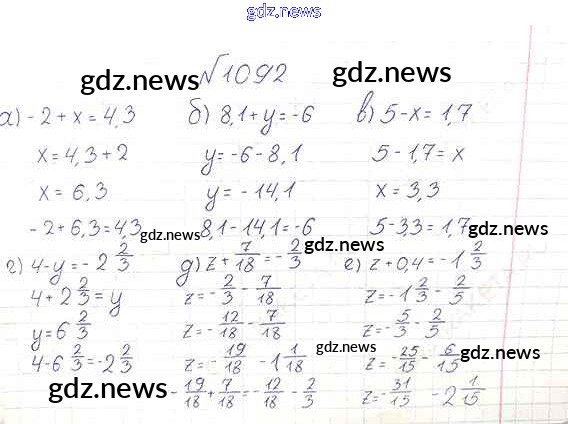 gdz.news
№1092
gdz.news gdz.news
а) -2 + x = 4,3
x = 4,3 + 2
x = 6,3
-2 + 6,3 = 4,3
б) 8,1 + y = -6
y = -6 - 8,1
y = -14,1
8,1 - 14,1 = -6
в) 5 - x = 1,7
5 - 1,7 = x
x = 3,3
5 - 3,3 = 1,7
gdz.news gdz.news
г) 4 - y = -2 2/3
4 + 2 2/3 = y
y = 6 2/3
4 - 6 2/3 = -2 2/3
gdz.news
д) z + 7/18 = -2/3
z = -2/3 - 7/18
z = -12/18 - 7/18
z = -19/18 -1 1/18
-19/18 + 7/18 = -12/18 - 2/3
е) z + 0,4 = -1 2/3
z = -1 2/3 - 2/5
z = -5/3 - 2/5
gdz.news
z = -25/15 - 6/15
z = -31/15 - 2 1/15
gdz.news